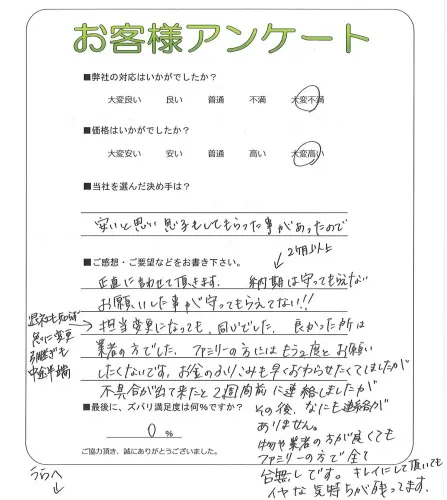 お客様アンケート
■弊社の対応はいかがでしたか？
大変良い 良い 普通 不満 大変不満
■価格はいかがでしたか？
大変安い 安い 普通 高い 大変高い
■当社を選んだ決め手は？
安いと思い 息子もしてもらった事があったので
■ご感想・ご要望などをお書き下さい。
2ヶ月以上
正直に言わせて頂きます。 納期は守ってもらえない
お願いした事が守ってもらえてない!!
退社も知らず
急に変更
引継ぎも
中途半端
担当変更になっても、同じでした。良かった所は
業者の方でした。ファミリーの方にはもう2度とお願い
したくないです。お金のふりこみも早くおわらせたくてしましたが
不具合が出て来たと2週間前に連絡しましたが
その後、なにも連絡が
ありません。
■最後に、ズバリ満足度は何％ですか？
0 %
物や業者の方が良くても
ファミリーの方で全て
台無しです。キレイにして頂いても
イヤな気持ちが残ってます。
ご協力頂き、誠にありがとうございました。
うらへ